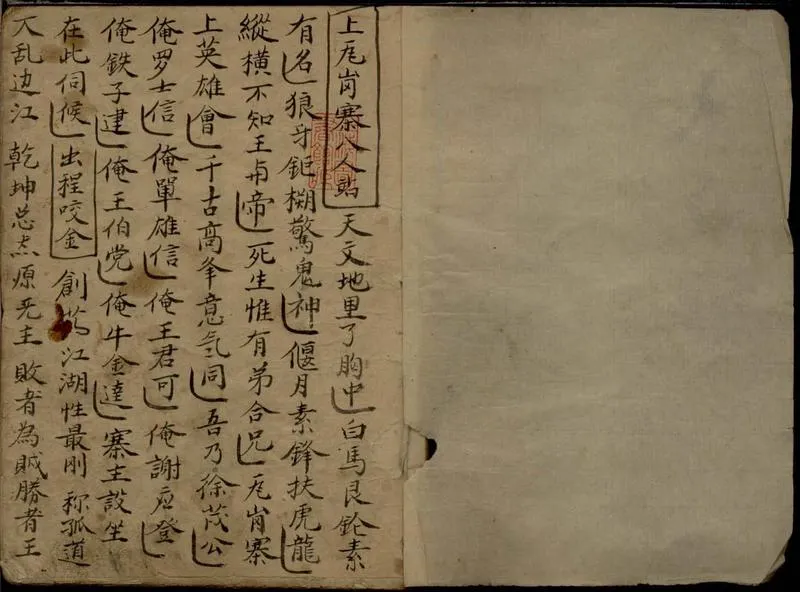 上瓦岗寨八人貼 天文地里了胸中 白馬艮鎗素
有名 狼牙鉅槊驚鬼神 偃月素鋒扶虎龍
縱橫不知王与帝 死生惟有弟合兄 瓦岗寨
上英雄會 千古高峯意气同 吾乃徐茂公
俺罗士信 俺單雄信 俺王君可 俺謝应登
俺鉄子建 俺王伯党 俺牛金達 寨主設坐
在此伺候 出程咬金 創 江湖性最刚 称孤道
乱边江 乾坤总 原无主 敗者為賊勝者王